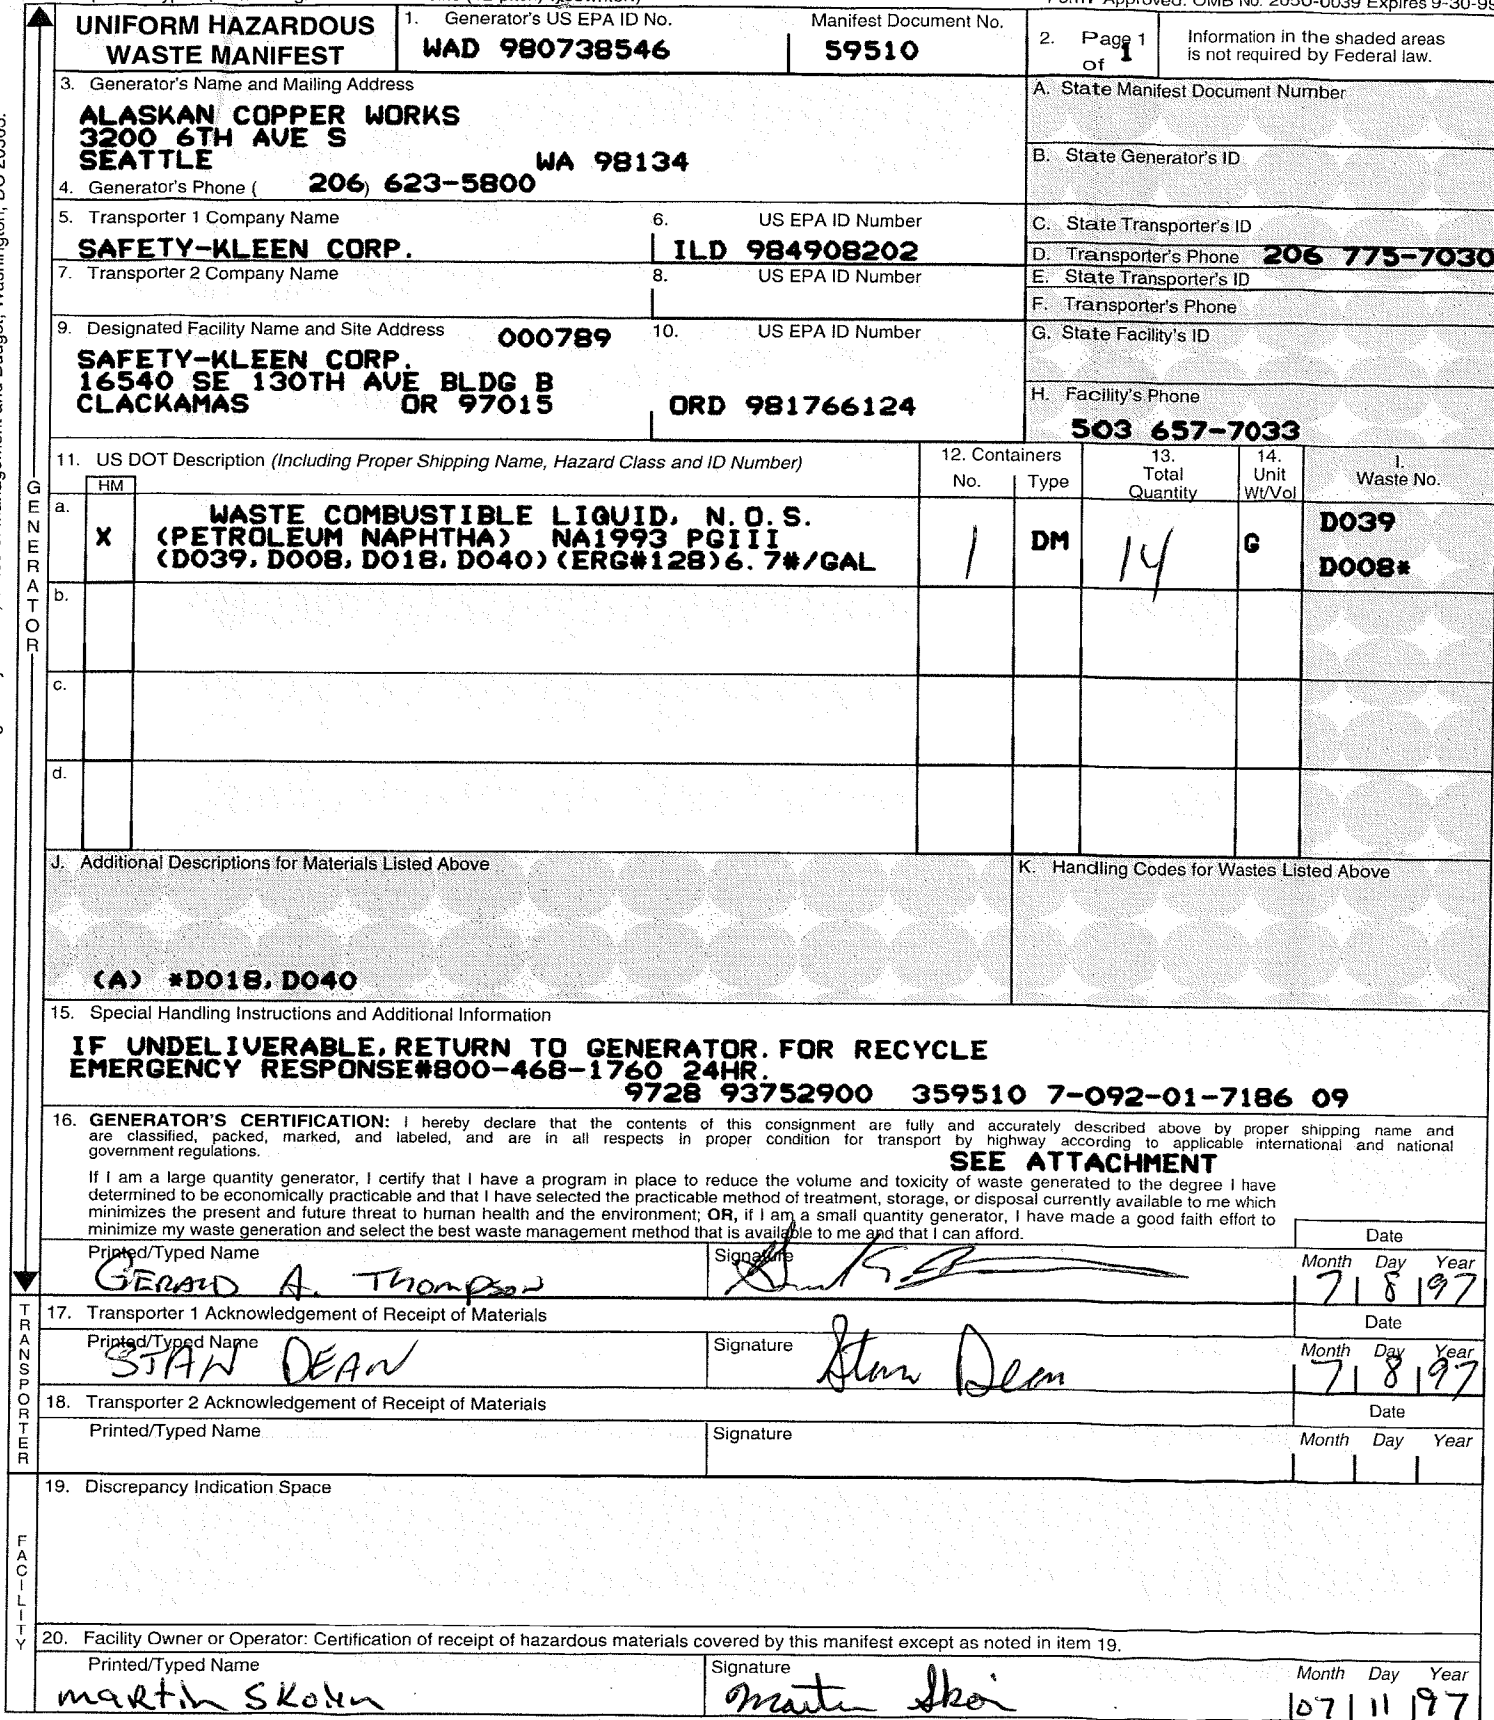 Form Approved. OMB No. 2050-0039 Expires 9-30-99
UNIFORM HAZARDOUS
WASTE MANIFEST
1. Generator's US EPA ID No.
WAD 980738546
Manifest Document No.
59510
2. Page 1
of 1
Information in the shaded areas
is not required by Federal law.
3. Generator's Name and Mailing Address
ALASKAN COPPER WORKS
3200 6TH AVE S
SEATTLE WA 98134
4. Generator's Phone ( 206 ) 623-5800
A. State Manifest Document Number
B. State Generator's ID
5. Transporter 1 Company Name
SAFETY-KLEEN CORP.
6. US EPA ID Number
ILD 984908202
C. State Transporter's ID
D. Transporter's Phone 206 775-7030
7. Transporter 2 Company Name
8. US EPA ID Number
E. State Transporter's ID
F. Transporter's Phone
9. Designated Facility Name and Site Address 000789
SAFETY-KLEEN CORP.
16540 SE 130TH AVE BLDG B
CLACKAMAS OR 97015
10. US EPA ID Number
ORD 981766124
G. State Facility's ID
H. Facility's Phone
503 657-7033
11. US DOT Description (Including Proper Shipping Name, Hazard Class and ID Number)
HM
12. Containers
No. Type
13.
Total
Quantity
14.
Unit
Wt/Vol
I.
Waste No.
a.
X
WASTE COMBUSTIBLE LIQUID, N.O.S.
(PETROLEUM NAPHTHA) NA1993 PGIII
(D039, D008, D018, D040)(ERG#128)6.7#/GAL
1 DM 14 G
D039
D008*
b.
c.
d.
GENERATOR
J. Additional Descriptions for Materials Listed Above
(A) *D018, D040
K. Handling Codes for Wastes Listed Above
15. Special Handling Instructions and Additional Information
IF UNDELIVERABLE, RETURN TO GENERATOR. FOR RECYCLE
EMERGENCY RESPONSE#800-468-1760 24HR.
9728 93752900 359510 7-092-01-7186 09
16. GENERATOR'S CERTIFICATION: I hereby declare that the contents of this consignment are fully and accurately described above by proper shipping name and
are classified, packed, marked, and labeled, and are in all respects in proper condition for transport by highway according to applicable international and national
government regulations.
SEE ATTACHMENT
If I am a large quantity generator, I certify that I have a program in place to reduce the volume and toxicity of waste generated to the degree I have
determined to be economically practicable and that I have selected the practicable method of treatment, storage, or disposal currently available to me which
minimizes the present and future threat to human health and the environment; OR, if I am a small quantity generator, I have made a good faith effort to
minimize my waste generation and select the best waste management method that is available to me and that I can afford.
Date
Printed/Typed Name
GERALD A. Thompson
Signature
Month Day Year
7 8 97
TRANSPORTER
17. Transporter 1 Acknowledgement of Receipt of Materials
Date
Printed/Typed Name
STAN DEAN
Signature
Stan Dean
Month Day Year
7 8 97
18. Transporter 2 Acknowledgement of Receipt of Materials
Date
Printed/Typed Name
Signature
Month Day Year
FACILITY
19. Discrepancy Indication Space
20. Facility Owner or Operator: Certification of receipt of hazardous materials covered by this manifest except as noted in item 19.
Printed/Typed Name
martin
Signature
Month Day Year
07 11 97